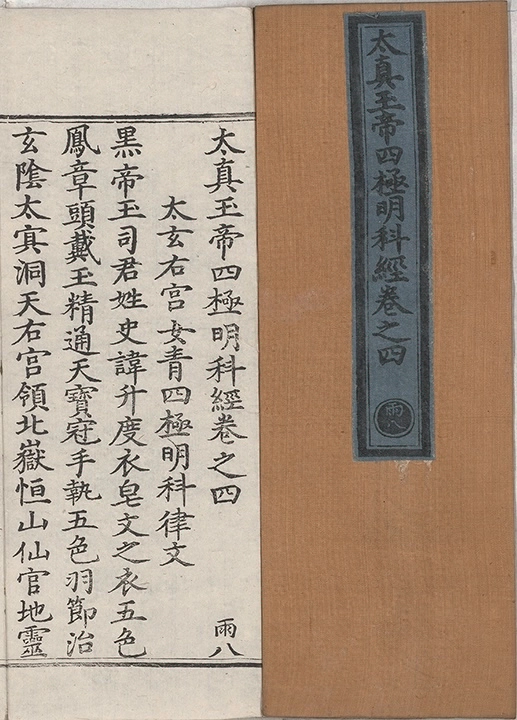 太真玉帝四極明科經卷之四
雨八
太真玉帝四極明科經卷之四 雨八
太玄右宫女青四極明科律文
黒帝玉司君姓史諱升度衣皂文之衣五色
鳳章頭戴玉精通天寶冠手執五色羽節治
玄陰太㝠洞天右宫領北嶽恒山仙官地靈